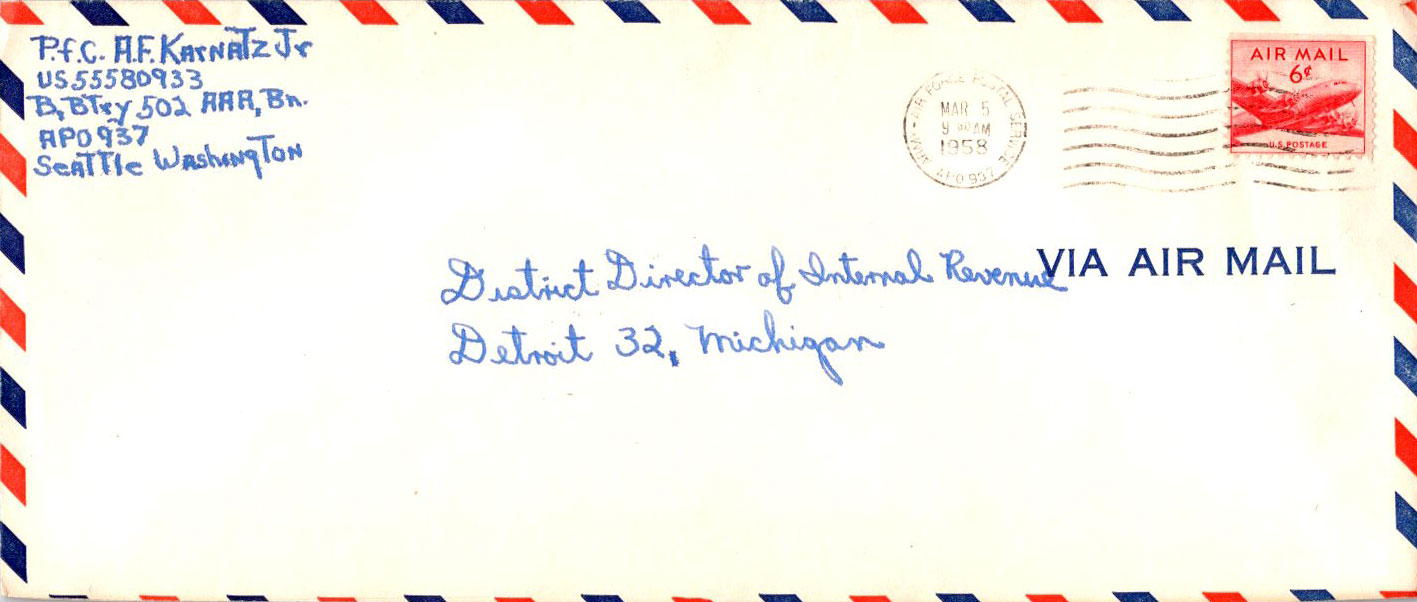 P.f.C. A.F. Karnatz Jr
US 55580933
B, BTry 502 AAA, Bn.
APO 937
Seattle Washington
ARMY - AIR FORCE POSTAL SERVICE
MAR 5
9 00 AM
1958
APO 937
AIR MAIL
6¢
U.S. POSTAGE
VIA AIR MAIL
District Director of Internal Revenue
Detroit 32, Michigan